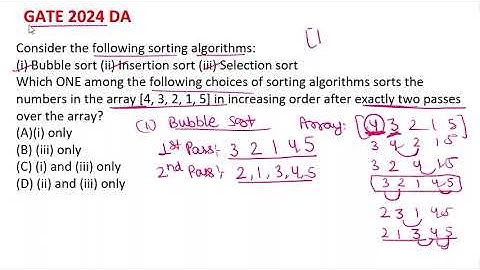 GATE 2024 DA
[1
Consider the following sorting algorithms:
(i) Bubble sort (ii) Insertion sort (iii) Selection sort
Which ONE among the following choices of sorting algorithms sorts the
numbers in the array [4, 3, 2, 1, 5] in increasing order after exactly two passes
over the array?
(A)(i) only
(B) (iii) only
(C) (i) and (iii) only
(D) (ii) and (iii) only
(1) Bubble sort
1st Pass: 3 2 1 4,5
2nd Pass: 2,1,3,4,5
Array: [4 3 2 1 5]
3 4 2 1 5
3 2 4 1 5
3 2 1 4 5
2 3 1 4 5
2 1 3 4 5